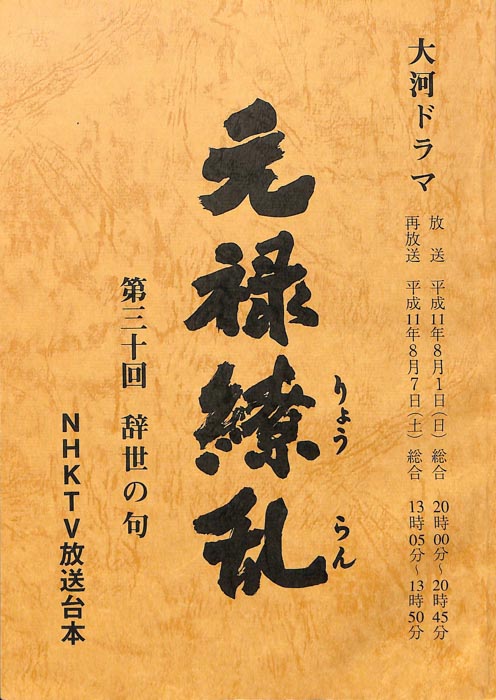 大河ドラマ
放送 平成11年8月1日(日) 総合 20時00分~20時45分
再放送 平成11年8月7日(土) 総合 13時05分~13時50分
元禄繚乱
りょう らん
第三十回 辞世の句
NHKTV放送台本